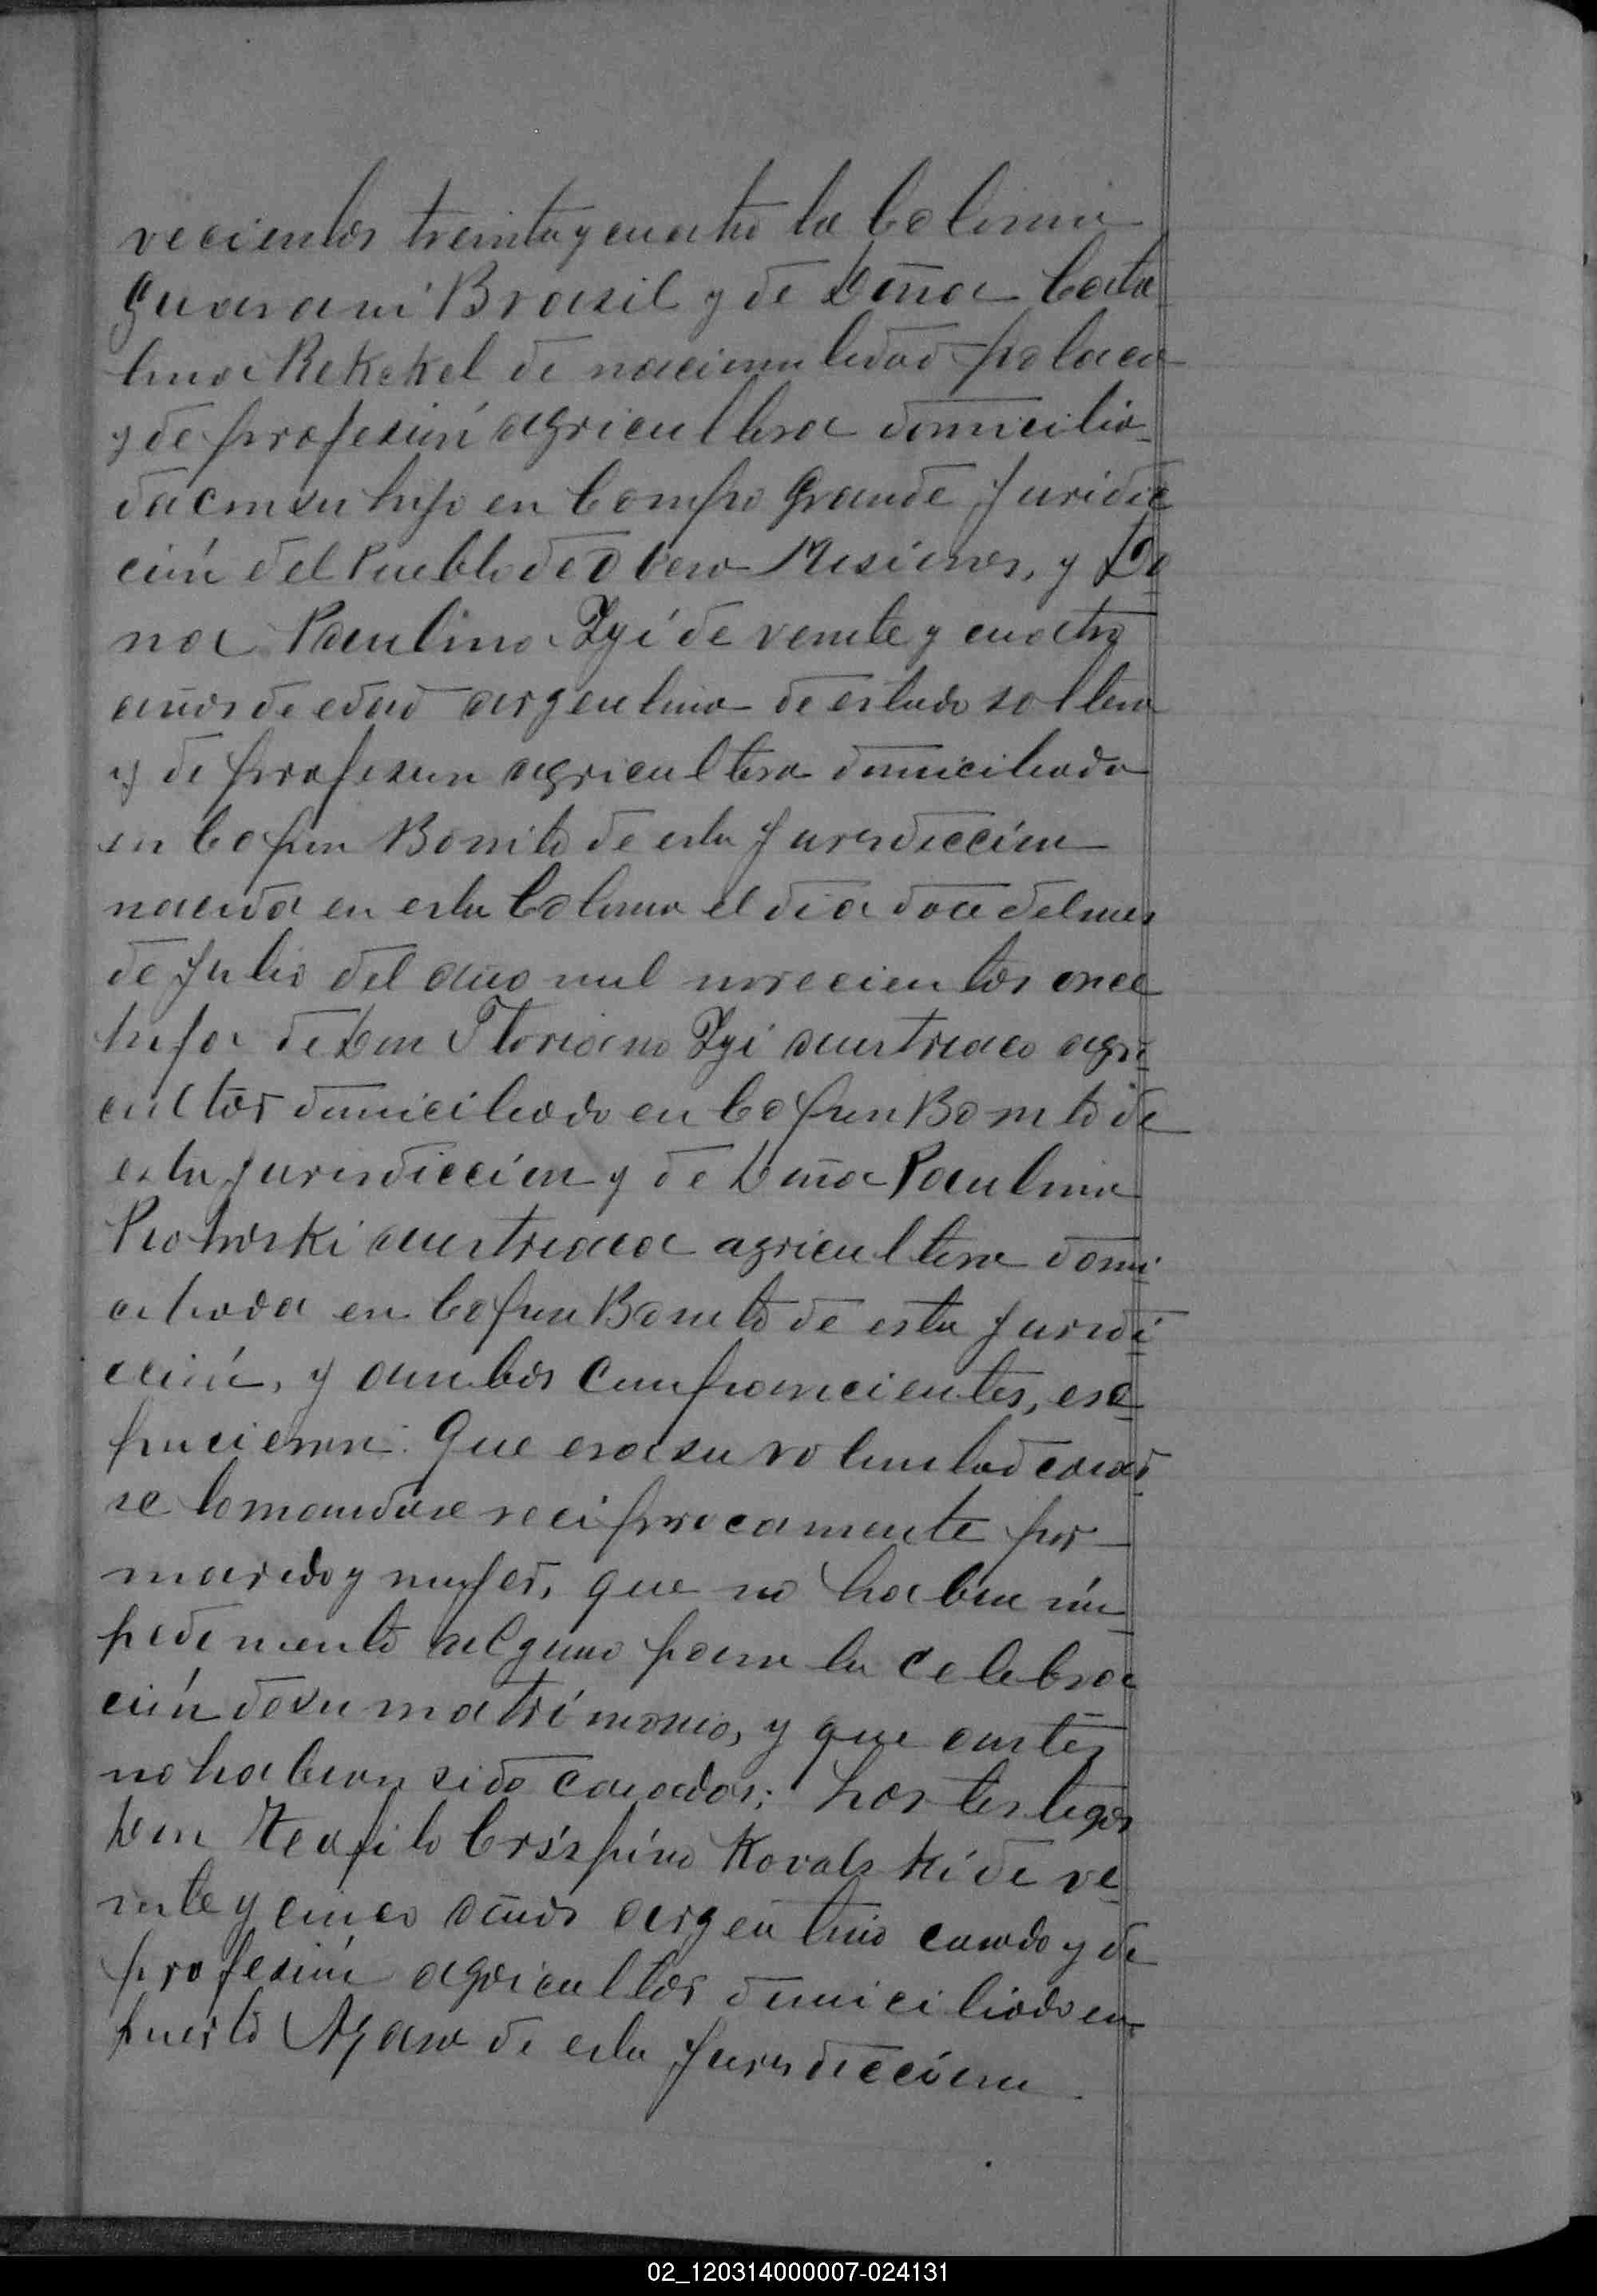 vecientos treinta y cuatro la Colonia
Guarani Brasil y de Doña Cata
lina Rekekel de nacionalidad polaca
y de profesión agricultora domicilia_
da con su hijo en Campo Grande Juridic
ción del Pueblo de Obera Misiones, y Do
na Paulina Zyí de veinte y cuatro
años de edad argentina de estado soltera
y de profesion agricultora domiciliada
en Capon Bonito de esta Jurisdiccíon
nacida en esta Colonia el día doce del mes
de Julio del año mil novecientos once
hija de Don Floriano Zyi austriaco agri
cultor domiciliado en Capon Bonito de
esta jurisdiccíon y de Doña Paulina
Piotroski austriaca agricultora domi
ciliada en Capon Bonito de esta jurisdi
cción, y ambos comparecientes, ex
pusieron: Que era su voluntad casar
se tomandose reciprocamente por
marido y mujer, que no habia im
pedimento alguno para la celebra
ción de su matrímonio, y que antes
no habian sido casados; Los testigos
Don Teofilo Críspíno Kovalskí de ve
inte y cinco años argentino casado y de
profesión agricultor domiciliado en
puerto Azara de esta Jurisdiccíon
02_120314000007-024131